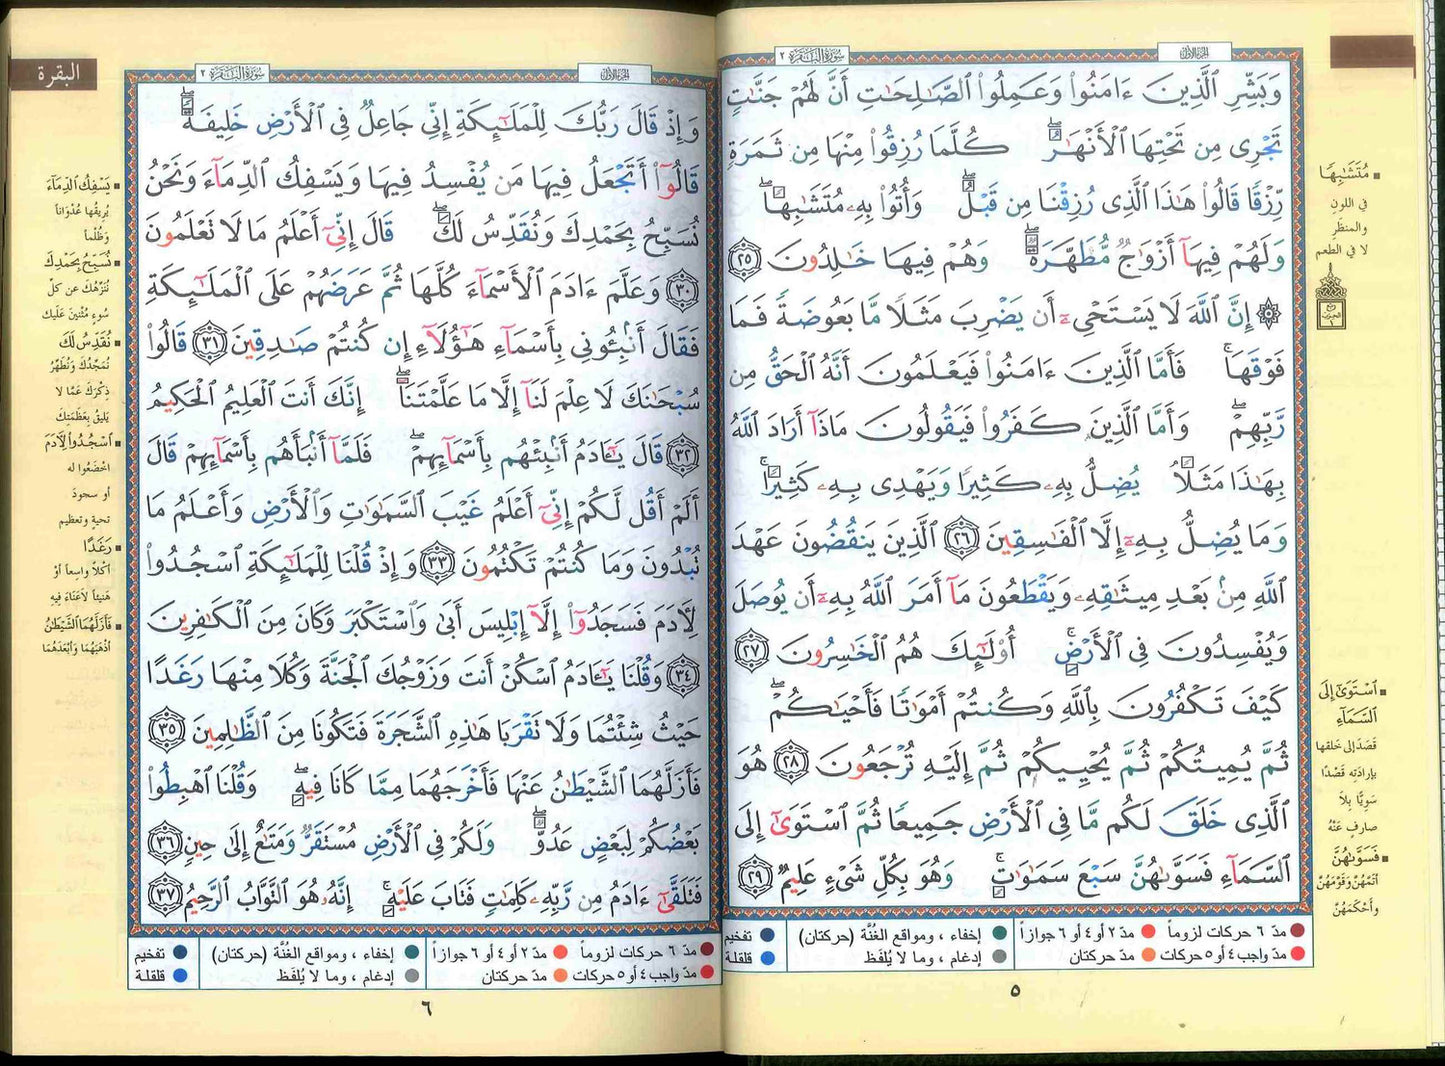 سُورَةُ البَقَرَةِ ٢
الجزء الأول
وَبَشِّرِ ٱلَّذِينَ ءَامَنُواْ وَعَمِلُواْ ٱلصَّٰلِحَٰتِ أَنَّ لَهُمْ جَنَّٰتٍ
تَجْرِى مِن تَحْتِهَا ٱلْأَنْهَٰرُ كُلَّمَا رُزِقُواْ مِنْهَا مِن ثَمَرَةٍ
رِّزْقًا قَالُواْ هَٰذَا ٱلَّذِى رُزِقْنَا مِن قَبْلُ وَأُتُواْ بِهِۦ مُتَشَٰبِهًا
وَلَهُمْ فِيهَآ أَزْوَٰجٌ مُّطَهَّرَةٌ وَهُمْ فِيهَا خَٰلِدُونَ ٢٥
۞ إِنَّ ٱللَّهَ لَا يَسْتَحْىِۦٓ أَن يَضْرِبَ مَثَلًا مَّا بَعُوضَةً فَمَا
فَوْقَهَا فَأَمَّا ٱلَّذِينَ ءَامَنُواْ فَيَعْلَمُونَ أَنَّهُ ٱلْحَقُّ مِن
رَّبِّهِمْ وَأَمَّا ٱلَّذِينَ كَفَرُواْ فَيَقُولُونَ مَاذَآ أَرَادَ ٱللَّهُ
بِهَٰذَا مَثَلًا يُضِلُّ بِهِۦ كَثِيرًا وَيَهْدِى بِهِۦ كَثِيرًا
وَمَا يُضِلُّ بِهِۦٓ إِلَّا ٱلْفَٰسِقِينَ ٢٦ ٱلَّذِينَ يَنقُضُونَ عَهْدَ
ٱللَّهِ مِنۢ بَعْدِ مِيثَٰقِهِۦ وَيَقْطَعُونَ مَآ أَمَرَ ٱللَّهُ بِهِۦٓ أَن يُوصَلَ
وَيُفْسِدُونَ فِى ٱلْأَرْضِ أُوْلَٰٓئِكَ هُمُ ٱلْخَٰسِرُونَ ٢٧
كَيْفَ تَكْفُرُونَ بِٱللَّهِ وَكُنتُمْ أَمْوَٰتًا فَأَحْيَٰكُمْ
ثُمَّ يُمِيتُكُمْ ثُمَّ يُحْيِيكُمْ ثُمَّ إِلَيْهِ تُرْجَعُونَ ٢٨ هُوَ
ٱلَّذِى خَلَقَ لَكُم مَّا فِى ٱلْأَرْضِ جَمِيعًا ثُمَّ ٱسْتَوَىٰٓ إِلَى
ٱلسَّمَآءِ فَسَوَّىٰهُنَّ سَبْعَ سَمَٰوَٰتٍ وَهُوَ بِكُلِّ شَىْءٍ عَلِيمٌ ٢٩
مُتَشَٰبِهًا
في اللونِ
والمنظَرِ
لا في الطعم
ٱسْتَوَىٰٓ إِلَى
ٱلسَّمَآءِ
قَصَدَ إلى خلقها
بإرادَتِهِ قَصْدًا
سَوِيًّا بِلاَ
صارفٍ عَنْهُ
فَسَوَّىٰهُنَّ
أَتَمَّهُنَّ وَقَوَّمَهُنَّ
وأَحْكَمَهُنَّ
مدّ ٦ حركات لزوماً مدّ ٢ أو ٤ أو ٦ جوازاً إخفاء ، ومواقع الغُنَّة (حركتان) تفخيم
مدّ واجب ٤ أو ٥ حركات مدّ حركتان إدغام ، وما لا يُلفَظ قلقلة
٥
البقرة
الجزء الأول
سُورَةُ البَقَرَةِ ٢
وَإِذْ قَالَ رَبُّكَ لِلْمَلَٰٓئِكَةِ إِنِّى جَاعِلٌ فِى ٱلْأَرْضِ خَلِيفَةً
قَالُوٓاْ أَتَجْعَلُ فِيهَا مَن يُفْسِدُ فِيهَا وَيَسْفِكُ ٱلدِّمَآءَ وَنَحْنُ
نُسَبِّحُ بِحَمْدِكَ وَنُقَدِّسُ لَكَ قَالَ إِنِّىٓ أَعْلَمُ مَا لَا تَعْلَمُونَ
٣٠ وَعَلَّمَ ءَادَمَ ٱلْأَسْمَآءَ كُلَّهَا ثُمَّ عَرَضَهُمْ عَلَى ٱلْمَلَٰٓئِكَةِ
فَقَالَ أَنۢبِـُٔونِى بِأَسْمَآءِ هَٰٓؤُلَآءِ إِن كُنتُمْ صَٰدِقِينَ ٣١ قَالُواْ
سُبْحَٰنَكَ لَا عِلْمَ لَنَآ إِلَّا مَا عَلَّمْتَنَآ إِنَّكَ أَنتَ ٱلْعَلِيمُ ٱلْحَكِيمُ
٣٢ قَالَ يَٰٓـَٔادَمُ أَنۢبِئْهُم بِأَسْمَآئِهِمْ فَلَمَّآ أَنۢبَأَهُم بِأَسْمَآئِهِمْ قَالَ
أَلَمْ أَقُل لَّكُمْ إِنِّىٓ أَعْلَمُ غَيْبَ ٱلسَّمَٰوَٰتِ وَٱلْأَرْضِ وَأَعْلَمُ مَا
تُبْدُونَ وَمَا كُنتُمْ تَكْتُمُونَ ٣٣ وَإِذْ قُلْنَا لِلْمَلَٰٓئِكَةِ ٱسْجُدُواْ
لِـَٔادَمَ فَسَجَدُوٓاْ إِلَّآ إِبْلِيسَ أَبَىٰ وَٱسْتَكْبَرَ وَكَانَ مِنَ ٱلْكَٰفِرِينَ
٣٤ وَقُلْنَا يَٰٓـَٔادَمُ ٱسْكُنْ أَنتَ وَزَوْجُكَ ٱلْجَنَّةَ وَكُلَا مِنْهَا رَغَدًا
حَيْثُ شِئْتُمَا وَلَا تَقْرَبَا هَٰذِهِ ٱلشَّجَرَةَ فَتَكُونَا مِنَ ٱلظَّٰلِمِينَ ٣٥
فَأَزَلَّهُمَا ٱلشَّيْطَٰنُ عَنْهَا فَأَخْرَجَهُمَا مِمَّا كَانَا فِيهِ وَقُلْنَا ٱهْبِطُواْ
بَعْضُكُمْ لِبَعْضٍ عَدُوٌّ وَلَكُمْ فِى ٱلْأَرْضِ مُسْتَقَرٌّ وَمَتَٰعٌ إِلَىٰ حِينٍ ٣٦
فَتَلَقَّىٰٓ ءَادَمُ مِن رَّبِّهِۦ كَلِمَٰتٍ فَتَابَ عَلَيْهِ إِنَّهُۥ هُوَ ٱلتَّوَّابُ ٱلرَّحِيمُ ٣٧
يَسْفِكُ ٱلدِّمَآءَ
يُرِيقُها عُدْوَاناً
وَظُلْماً
نُسَبِّحُ بِحَمْدِكَ
نُنَزِّهُكَ عن كلّ
سُوءٍ مُثْنينَ عَلَيك
نُقَدِّسُ لَكَ
نُمَجِّدُكَ وَنُطَهِّرُ
ذِكْرَكَ عَمَّا لا
يَليقُ بِعَظَمَتِكَ
ٱسْجُدُواْ لِـَٔادَمَ
اخْضَعُوا له
أو سجودَ
تحيةٍ وتعظيم
رَغَدًا
أكْلاً واسِعاً أوْ
هَنيئاً لا عَنَاءَ فِيهِ
فَأَزَلَّهُمَا ٱلشَّيْطَٰنُ
أَذْهَبَهُمَا وَأَبْعَدَهُمَا
مدّ ٦ حركات لزوماً مدّ ٢ أو ٤ أو ٦ جوازاً إخفاء ، ومواقع الغُنَّة (حركتان) تفخيم
مدّ واجب ٤ أو ٥ حركات مدّ حركتان إدغام ، وما لا يُلفَظ قلقلة
٦